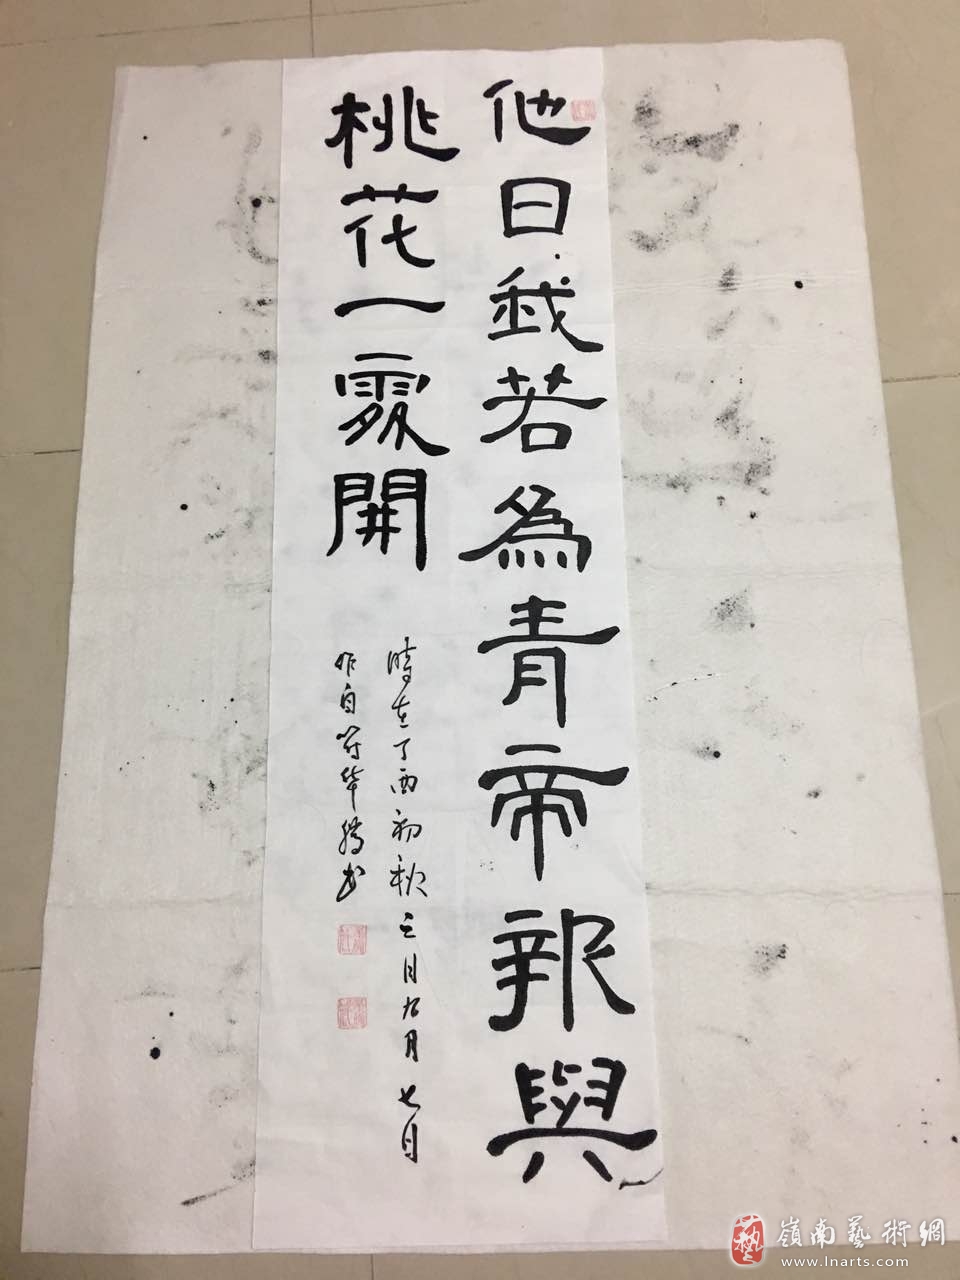 他日我若為青帝報與
桃花一處開
時在丁酉初秋之月九月七日
作自符華勝书
嶺南藝術網
www.lnarts.com